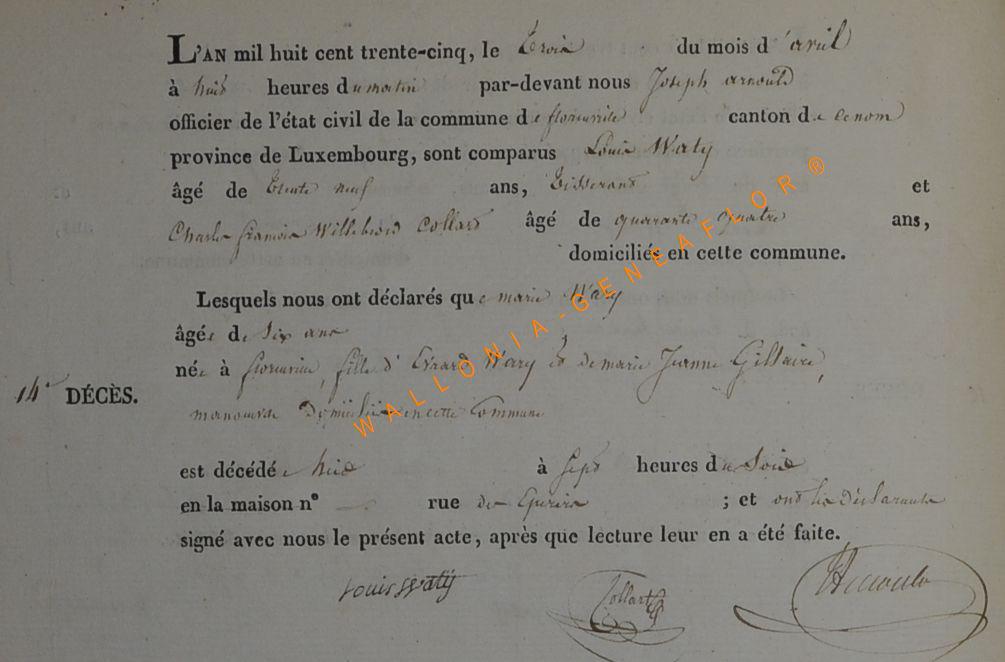 L'AN mil huit cent trente-cinq, le trois du mois d'avril
à huit heures du matin par-devant nous Joseph arnould
officier de l'état civil de la commune de florenville canton de ce nom
province de Luxembourg, sont comparus Louis Waty
âgé de trente neuf ans, tisserand et
Charles françois Willebrord Collard âgé de quarante quatre ans,
domiciliés en cette commune.
Lesquels nous ont déclarés que marie Wary
âgée de six ans
née à florenville, fille d' Evrard Wary et de marie Jeanne Gillaire,
14e DÉCÈS.
manouvre domicilié en cette Commune
est décédée hier à sept heures du Soir
en la maison n° rue de ; et ont les déclarants
signé avec nous le présent acte, après que lecture leur en a été faite.
Louis Waty Collart Arnould
WALLONIA-GENEAFLOR®